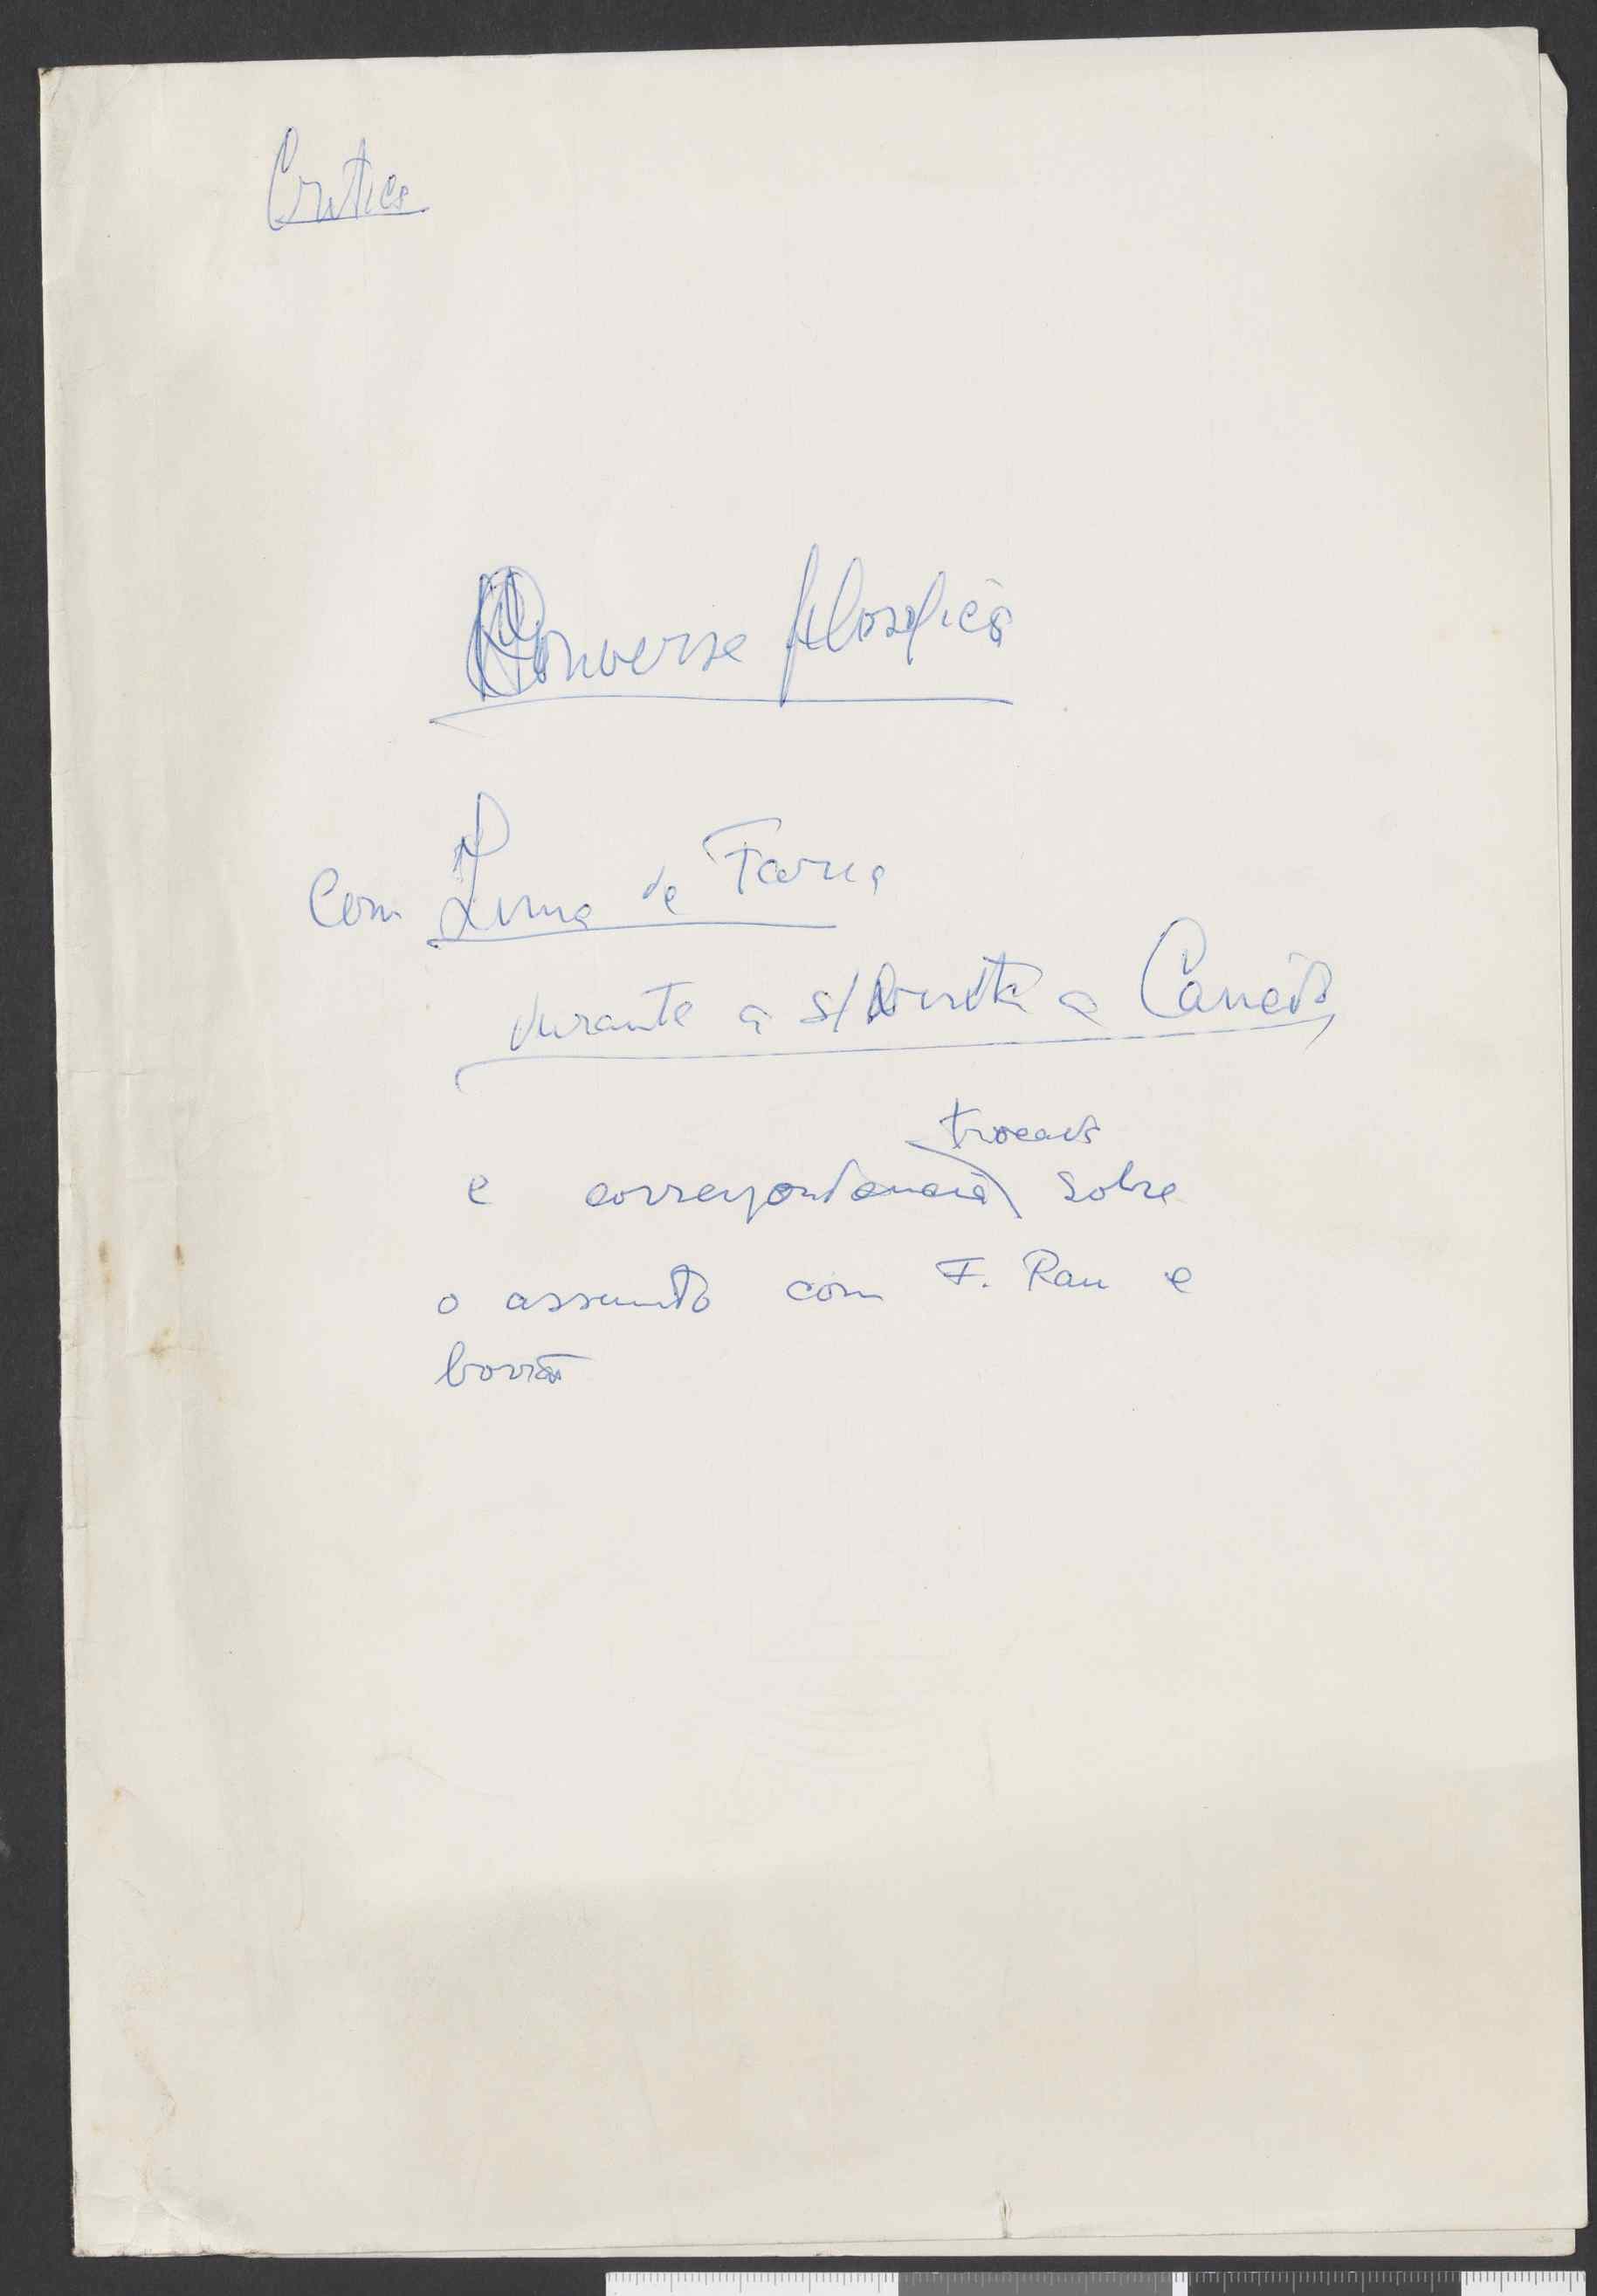 Critica
Conversa filosofica
Com Lima de Faria
durante a s/ visita a Canadá
trocada
e correspondencia sobre
o assunto com F. Rau e